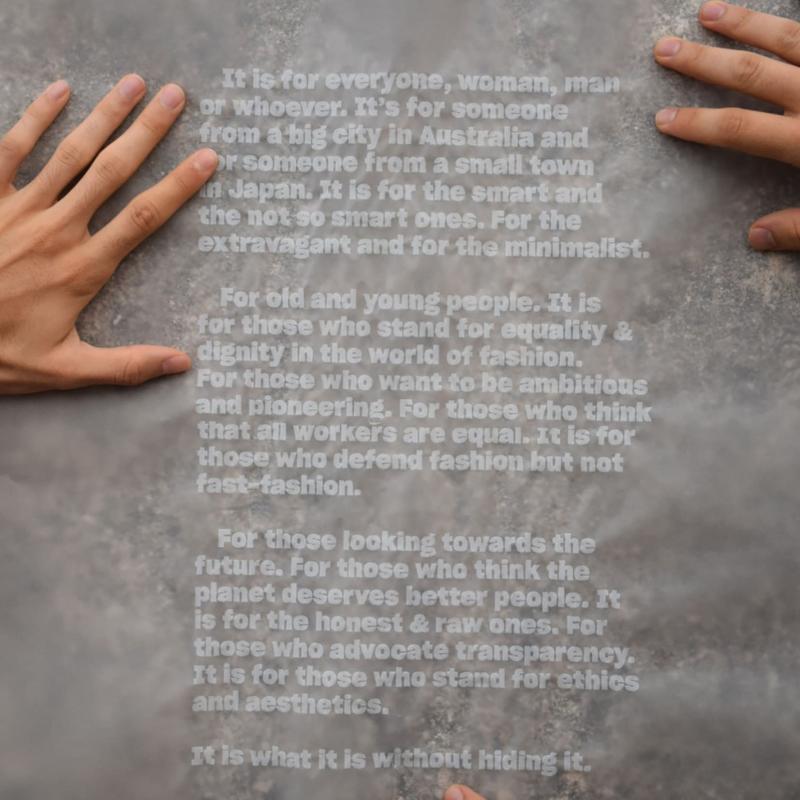 It is for everyone, woman, man
or whoever. It's for someone
from a big city in Australia and
or someone from a small town
in Japan. It is for the smart and
the not so smart ones. For the
extravagant and for the minimalist.
For old and young people. It is
for those who stand for equality &
dignity in the world of fashion.
For those who want to be ambitious
and pioneering. For those who think
that all workers are equal. It is for
those who defend fashion but not
fast-fashion.
For those looking towards the
future. For those who think the
planet deserves better people. It
is for the honest & raw ones. For
those who advocate transparency.
It is for those who stand for ethics
and aesthetics.
It is what it is without hiding it.